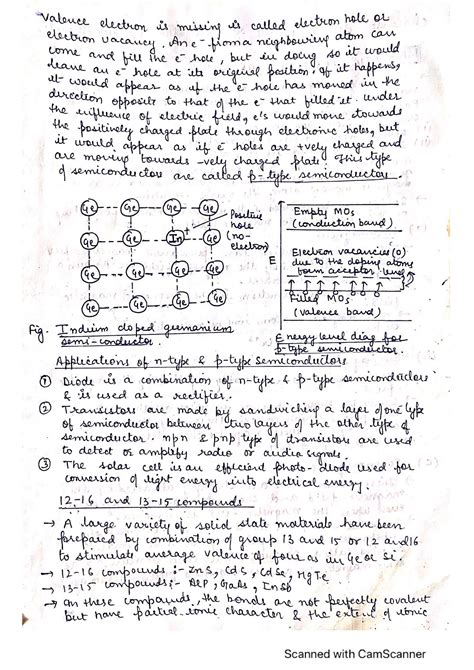 Valence electron is missing is called electron hole or
electron vacancy. An e⁻ from a neighbouring atom can
come and fill the e⁻ hole, but in doing so it would
leave an e⁻ hole at its original position. If it happens,
it would appear as if the e⁻ hole has moved in the
direction opposite to that of the e⁻ that filled it. Under
the influence of electric field, e's would move towards
the positively charged plate through electronic holes, but
it would appear as if e⁻ holes are +vely charged and
are moving towards -vely charged plate. This type
of semiconductors are called p-type semiconductors.
Ge Ge Ge Ge
Ge Ge In Ge
Ge Ge Ge Ge
Ge Ge Ge Ge
+
Positive
hole
(no-
electron)
Empty MOs
(conduction band)
E
Electron vacancies (0)
due to the doping atoms
form acceptor level
Filled MOs
(valence band)
Fig. Indium doped germanium
semi-conductor.
Energy level diag for
p-type semiconductor.
Applications of n-type & p-type semiconductors
① Diode is a combination of n-type & p-type semiconductors
& is used as a rectifier.
② Transistors are made by sandwiching a layer of one type
of semiconductor between two layers of the other type of
semiconductor. npn & pnp type of transistors are used
to detect or amplify radio or audio signals.
③ The solar cell is an efficient photo-diode used for
conversion of light energy into electrical energy.
12-16 and 13-15 compounds
→ A large variety of solid state materials have been
prepared by combination of group 13 and 15 or 12 and 16
to stimulate average valence of four as in Ge or Si.
→ 12-16 compounds :- ZnS, CdS, CdSe, HgTe
→ 13-15 compounds :- AlP, GaAs, InSb
→ In these compounds, the bonds are not perfectly covalent
but have partial ionic character & the extent of ionic
Scanned with CamScanner